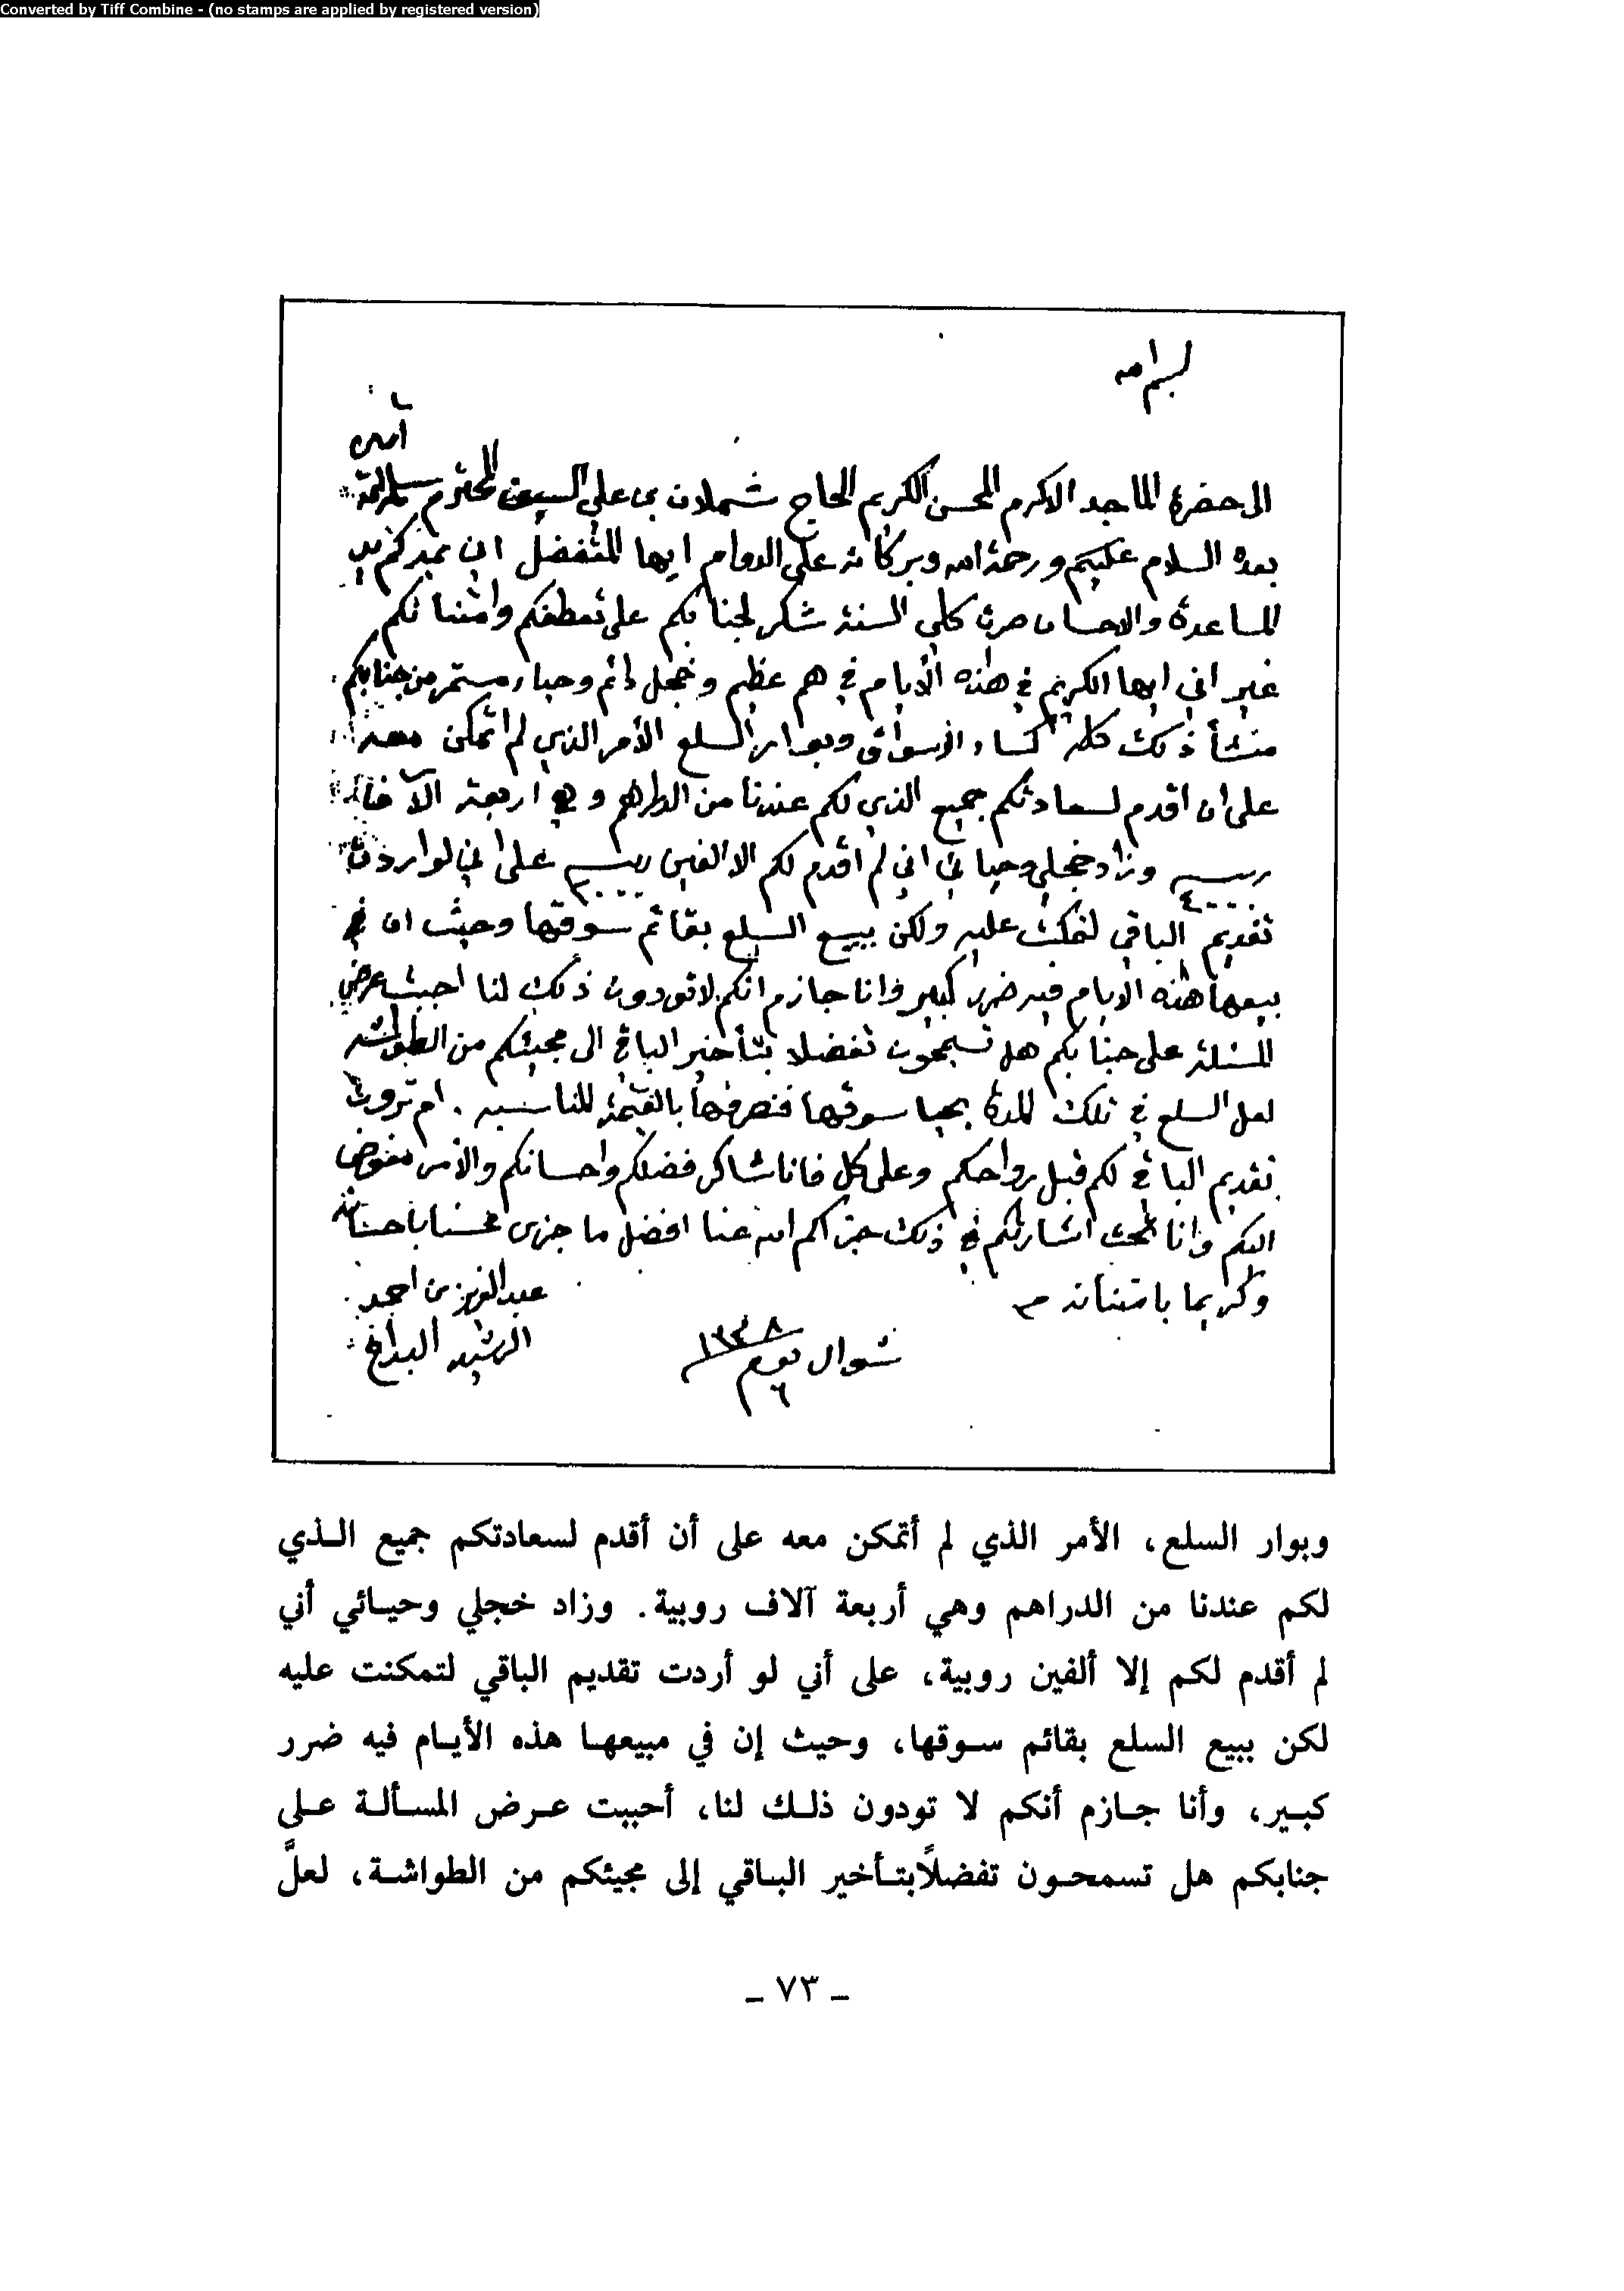 Converted by Tiff Combine - (no stamps are applied by registered version)
بسم الله
آمين
الى حضرة الماجد الاكرم المحسن الكريم الحاج شملان بن علي السيف المحترم سلمه الله
بعده السلام عليكم ورحمة الله وبركاته على الدوام ايها المتفضل ان يد
المساعدة والاحسان السنة شكر لجنابكم على تعطفكم وامتنانكم
غير اني ايها الكريم في هذه الأيام في هم عظيم وخجل دائم وحياء مستمر من جنابكم
منشأ ذلك كله كساد الاسواق وبوار السلع الأمر الذي لم اتمكن معه
على ان اقدم لسعادتكم جميع الذي لكم عندنا من الدراهم وهي اربعة الآف
ربية ٤٠٠٠ وزاد خجلي وحيائي اني لم اقدم لكم الا الفين ربية ٢٠٠٠ على اني لو اردت
تقديم الباقي لتمكنت عليه ولكن ببيع السلع بقائم سوقها وحيث ان في
بيعها هذه الايام فيه ضرر كبير وانا جازم انكم لا تودون ذلك لنا احببت عرض
المسئلة على جنابكم هل تسمحون تفضلا بتأخير الباقي الى مجيئكم من الطواشه
لعل السلع في تلك المدة يحيا سوقها فنصرفها بالقيمة المناسبه . ام ترون
تقديم الباقي لكم قبل رواحكم وعلى كل فانا شاكر فضلكم واحسانكم والأمر مفوض
اليكم وانا تحت اشارتكم في ذلك جزاكم الله عنا افضل ما جزى محسنا باحسانه
وكريما بامتنانه
عبدالعزيز بن احمد
الرشيد البداح
شوال يوم ٦ ١٣٣٨
وبوار السلع، الأمر الذي لم أتمكن معه على أن أقدم لسعادتكم جميع الـذي
لكم عندنا من الدراهم وهي أربعة آلاف روبية. وزاد خجلي وحيـائي أني
لم أقدم لكم إلا ألفين روبية، على أني لو أردت تقديم الباقي لتمكنت عليه
لكن ببيع السلع بقائم سـوقها، وحيث إن في مبيعهـا هذه الأيـام فيه ضرر
كبـير، وأنا جـازم أنكم لا تودون ذلـك لنا، أحببت عـرض المسـألـة عـلى
جنابكم هل تسمحـون تفضلاً بتـأخير البـاقي إلى مجيئكم من الطواشـة، لعلَّ
ـ ٧٣ ـ